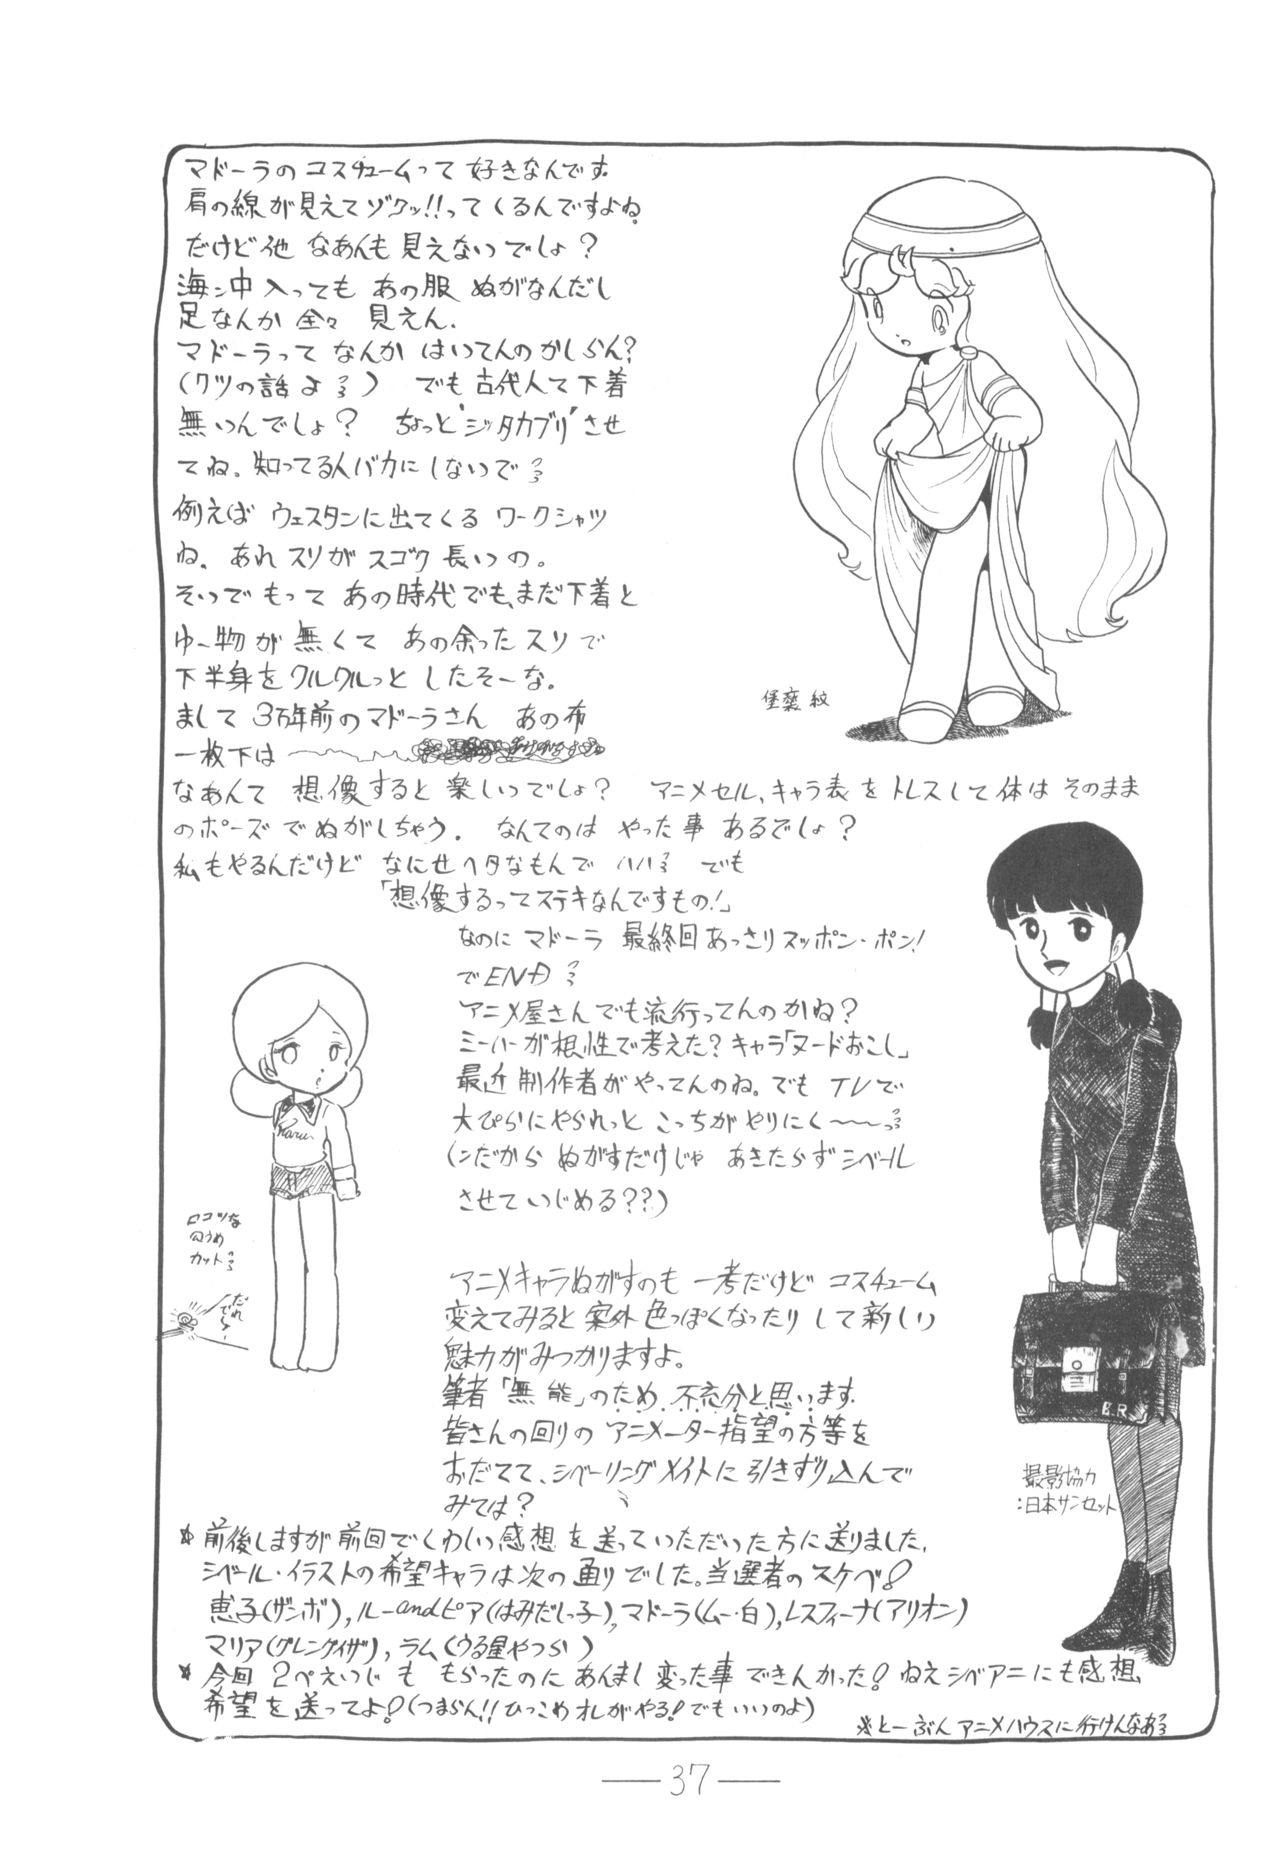 マドーラのコスチュームって好きなんです。
肩の線が見えてゾクッ!!ってくるんですよね。
だけど他 なあんも見えないでしょ?
足なんか全々 見えん.
マドーラってなんか はいてんのかしらん?
(クツの話よ) でも古代人て下着
無いんでしょ? ちょっと"ジッタカブリ"させ
てね。知ってる人バカにしないで
例えば ウェスタンに出てくる ワークシャツ
ね. あれスソがスゴク長いの。
そいでもって あの時代でも、まだ下着と
ゆー物が無くて あの余ったスソで
下半身をクルクルっと したそーな。
まして 3万年前のマドーラさん あの布
一枚下は
なあんて 想像すると楽しいでしょ? アニメセル、キャラ表をトレスして体はそのまま
のポーズでぬがしちゃう. なんてのは やった事あるでしょ?
私もやるんだけど なにせヘタなもんで ハハ でも
「想像するってステキなんですもの!」
なのに マドーラ 最終回あっさりスッポン・ポン!
でEND
アニメ屋さんでも流行ってんのかね?
ミーハーが根性で考えた? キャラ「ヌードおこし」
最近制作者がやってんのね。でも TVで
大ぴらにやられっと こっちがやりにく〜〜っ
(ンだから ぬがすだけじゃ あきたらずシベール
させて いじめる??)
アニメキャラぬがすのも 一考だけど コスチューム
変えてみると案外色っぽくなったりして新しい
魅力がみつかりますよ。
筆者「無能」のため、不充分と思います.
皆さんの回りの アニメーター指望の方等を
おだてて、シベーリングメイトに引きずり込んで
みては?
Karu
ロコツな
穴うめ
カット
だれ
でぇ〜!
B.R.
撮影協力
:日本サンセット
* 前後しますが前回でくわしい感想を送っていただいた方に送りました.
シベール・イラストの希望キャラは次の通りでした。当選者のスケベ!
恵子(ザンボ), ルーandピア(はみだしっ子), マドーラ(ムー・白), レスフィーナ(アリオン)
マリア(グレンダイザ), ラム(うる星やつら)
* 今回 2ぺえいじも もらったのに あんまし変った事 できんかった! ねえシベアニにも感想
希望を送ってよ!(つまらん!! ひっこめオレがやる!でもいいのよ)
※とーぶん アニメハウスに行けんなあ
—37—